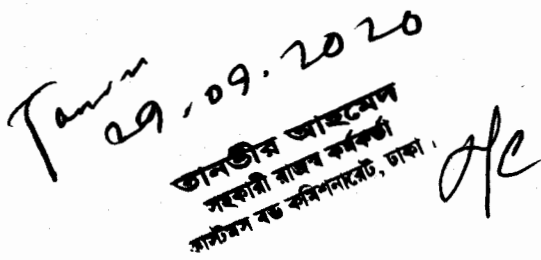 29.09.2020
তানভীর আহমেদ
সহকারী রাজস্ব কর্মকর্তা
কাস্টমস বন্ড কমিশনারেট, ঢাকা।